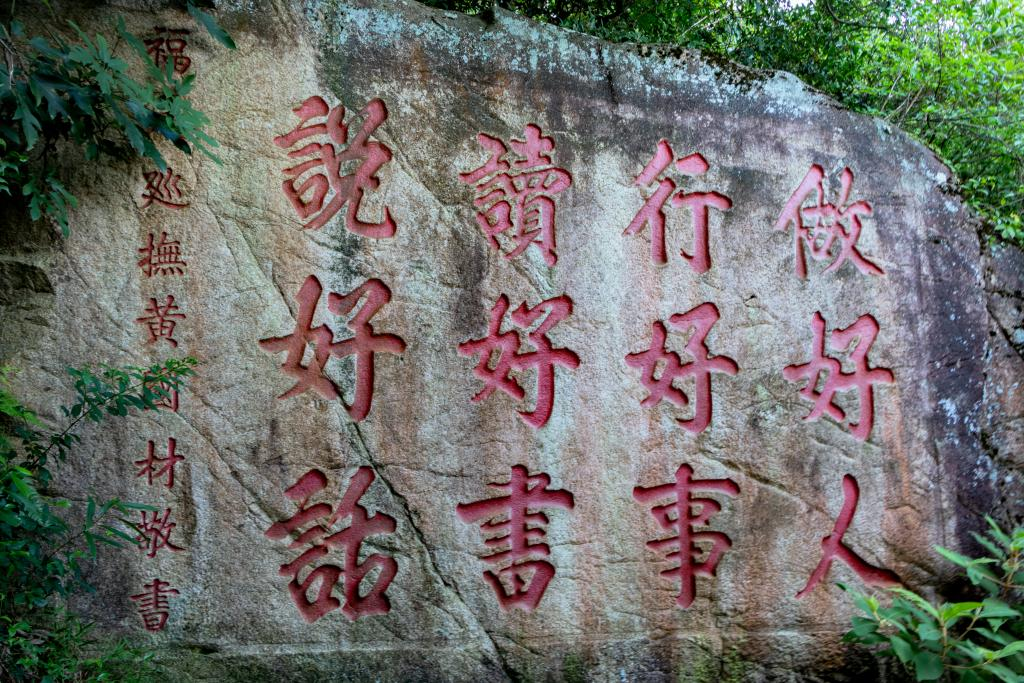 做好人
行好事
讀好書
說好話
福 廵撫黄 材敬書